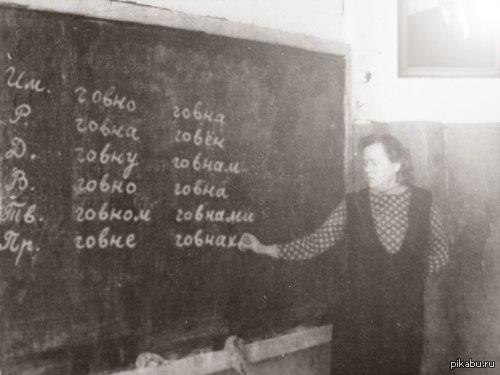 Им. говно говна
Р. говна говён
Д. говну говнам
В. говно говна
Тв. говном говнами
Пр. говне говнах
pikabu.ru